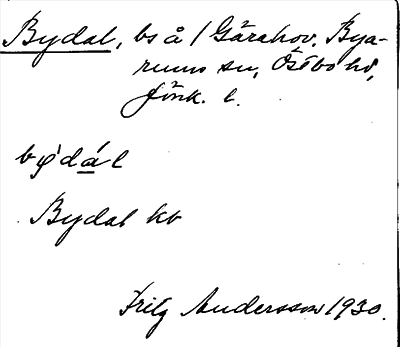 Bydal, bs å / Gärahov. Bya-
rums sn, Östbo hd,
Jönk. l.
bydál
Bydal kb
Fritz Andersson 1930.